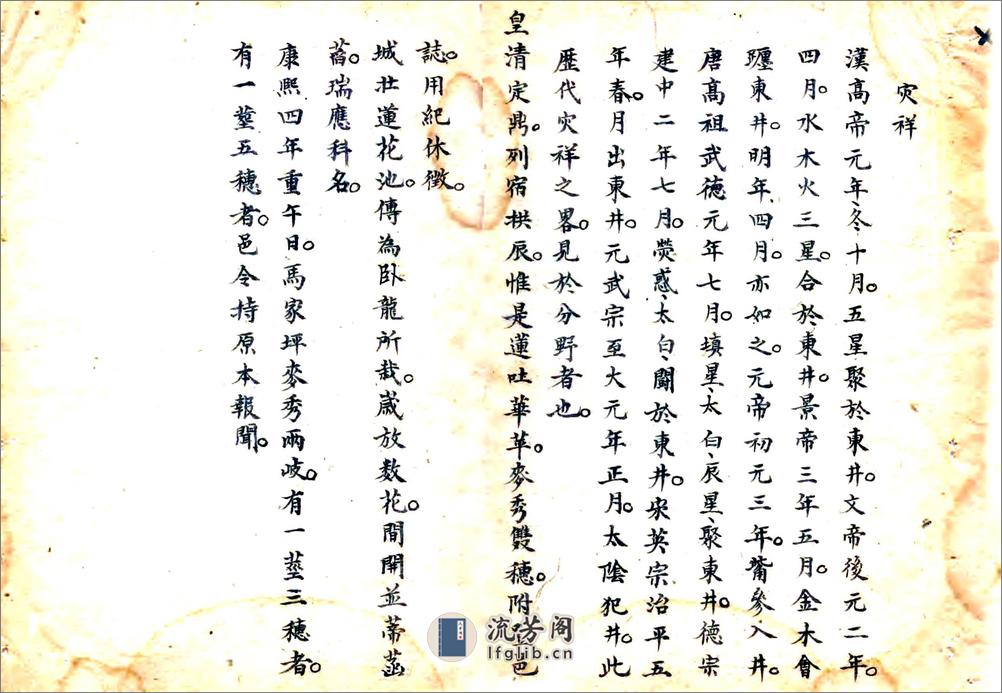 灾祥
漢高帝元年、冬十月。五星聚於東井。文帝後元二年。
四月。水木火三星。合於東井。景帝三年五月。金木會
躔東井。明年四月。亦如之。元帝初元三年。觜參入井。
唐高祖武德元年七月。填星、太白、辰星、聚東井。德宗
建中二年七月。熒惑、太白、鬪於東井。宋英宗治平五
年春。月出東井。元武宗至大元年正月。太陰犯井。此
歷代灾祥之畧。見於分野者也。
皇清定鼎。列宿拱辰。惟是蓮吐華苹。麥秀雙穗。附邑
誌。用紀休徵。
城壯蓮花池。傳為臥龍所栽。歲放数花。間開並蒂菡
萏。瑞應科名。
康熙四年重午日。馬家坪麥秀兩岐。有一莖三穗者。
有一莖五穗者。邑令持原本報聞。
流芳阁
lfglib.cn